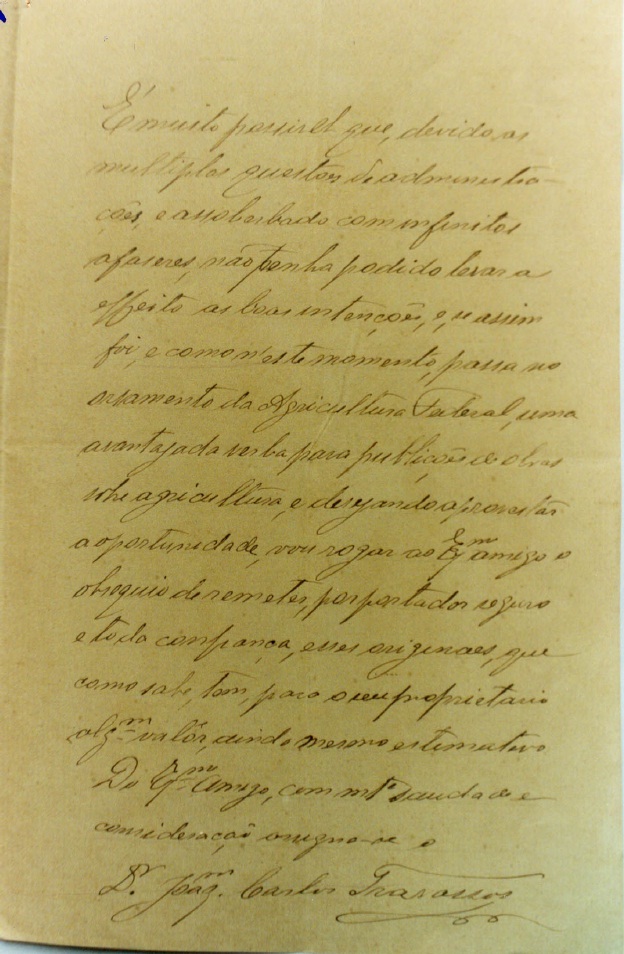 É muito possivel que, devido as
multiplas questões de administra-
ções, e assoberbado com infinitos
afaseres, não tenha podido levar a
effeito as boas intenções, e, se assim
foi, e como n'este momento, passa no
orsamento da Agricultura Federal, uma
avantajada verba para publições de obras
sobre agricultura, e desejando aproveitar
a oportunidade, vou rogar ao Exmº amigo o
obsequio de remeter, por portador seguro
e toda confiança, esses originaes, que
como sabe, tem, para o seu proprietario
algm valôr, ainda mesmo estimativo
Do amigo, com mtª saudade e
consideração assigno-se o
Dr. Joaqm. Carlos Travassos